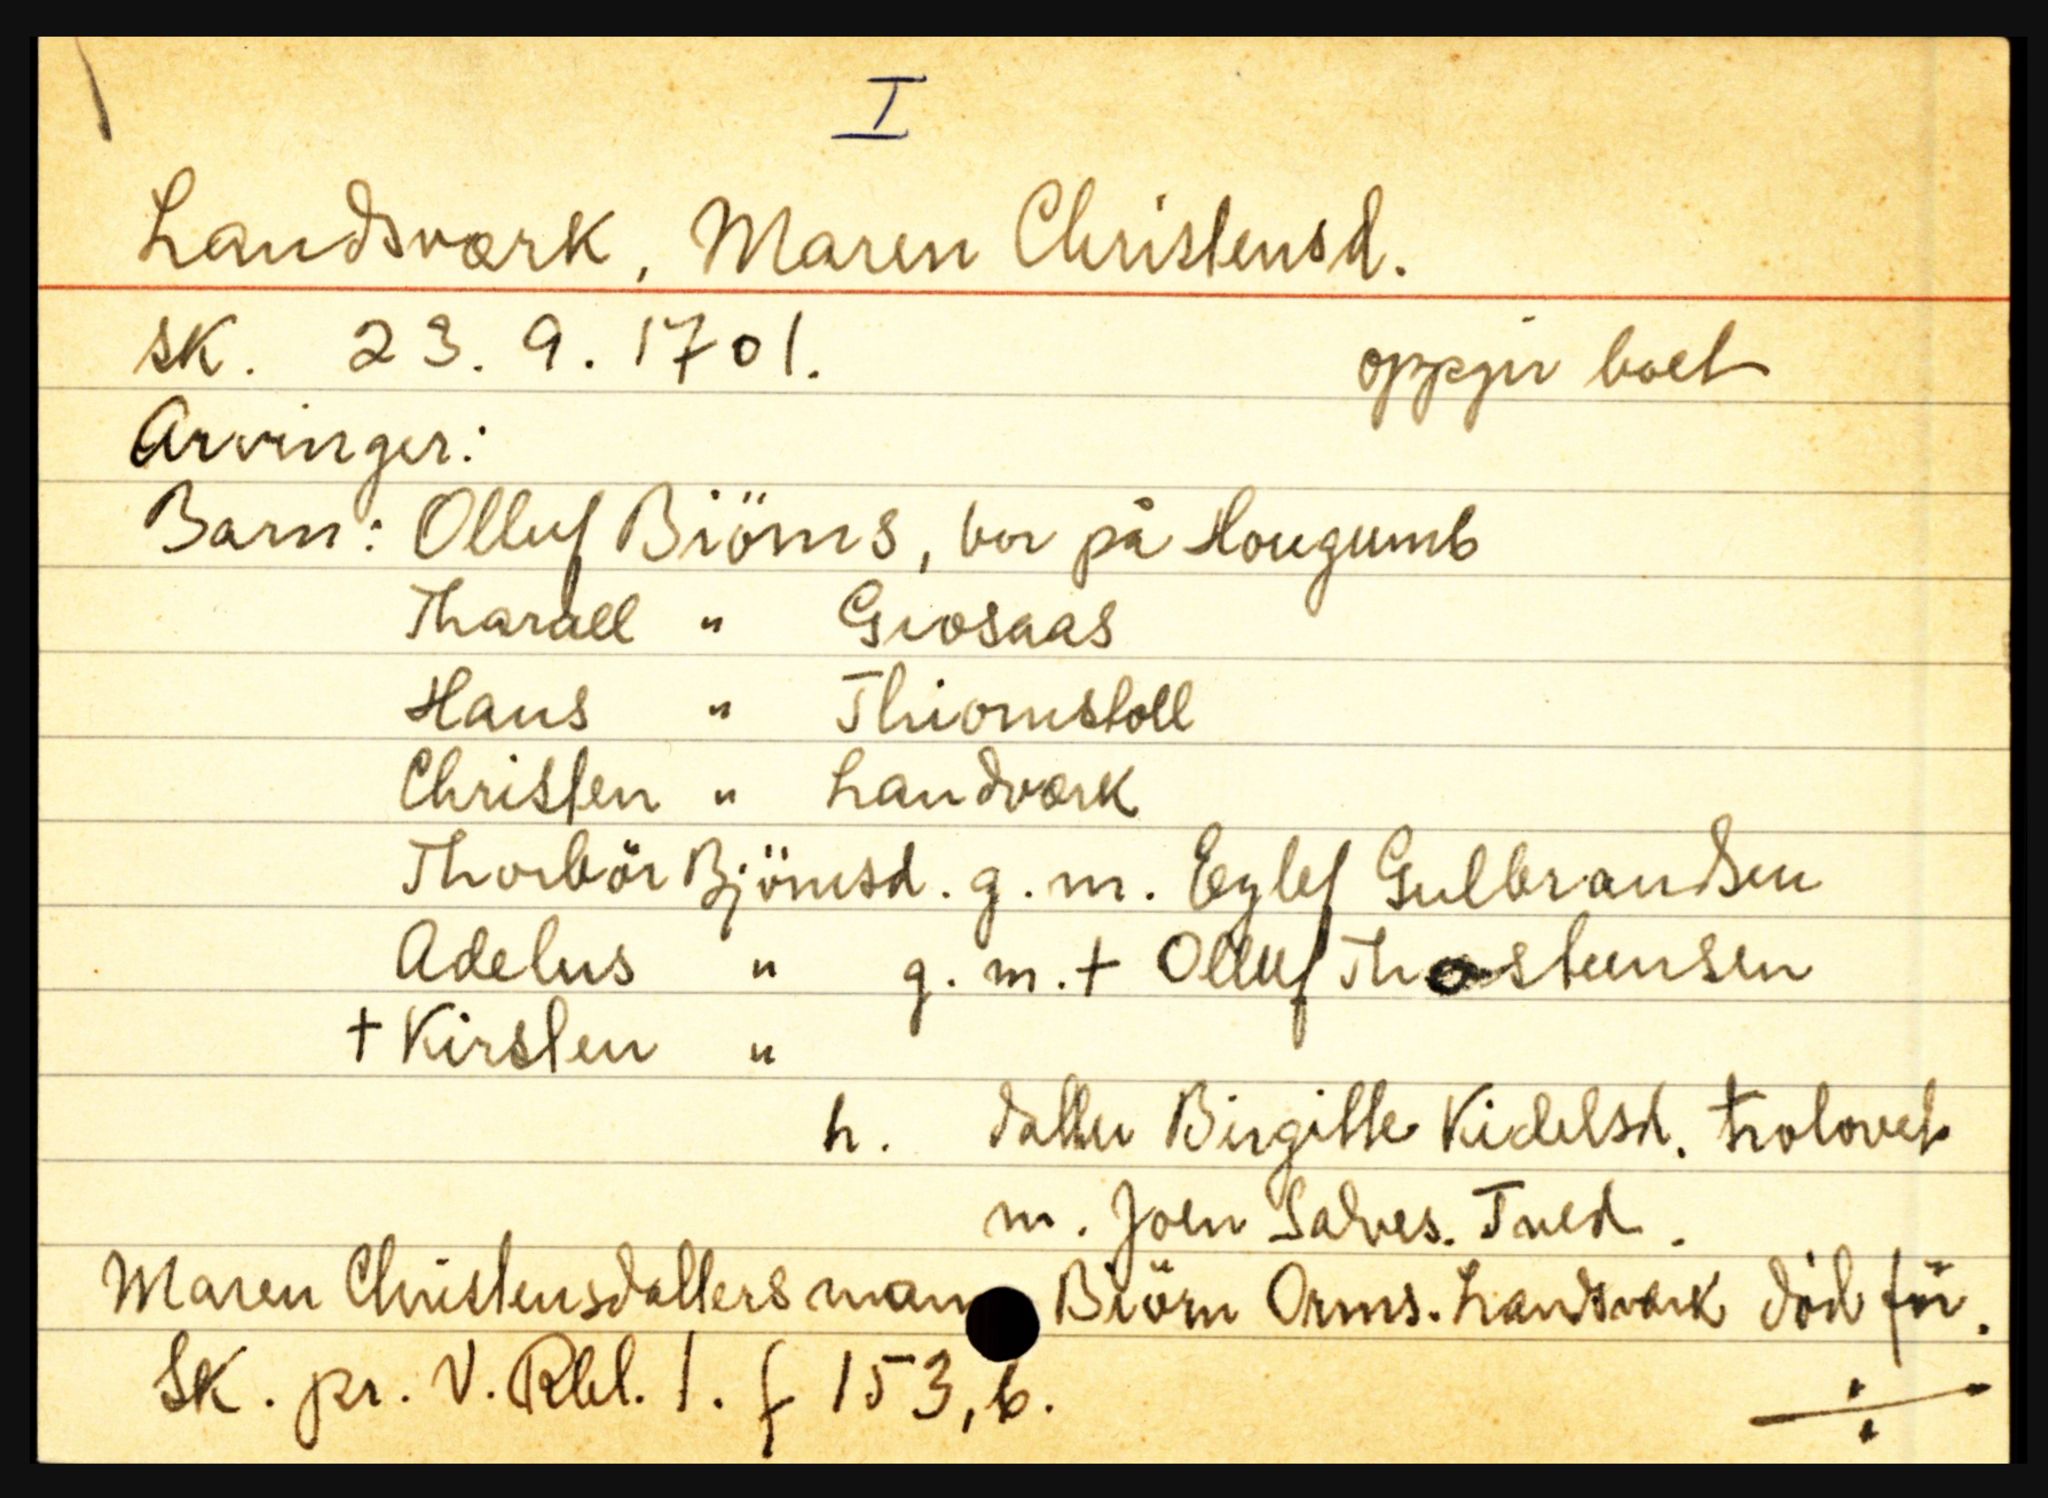 I
Landsværk, Maren Christensd.
sk. 23. 9. 1701. oppgir boet
Arvinger:
Barn: Olluf Biörns, bor på Hougumb
Tharall " Grosaas
Hans " Thiornstoll
Christen " Landværk
Thorbör Bjömsd. g. m. Eylef Gulbrandsen
Adelus " g. m. + Olluf Thosteensen
+ Kirsten "
h. datter Birgitte Kidelsd. trolovet
m. Joen Salves. Tved.
Maren Christensdatters mann Biörn Orms. Landsværk död för.
Sk. pr. V. Rbl. 1. f 153, b.
÷